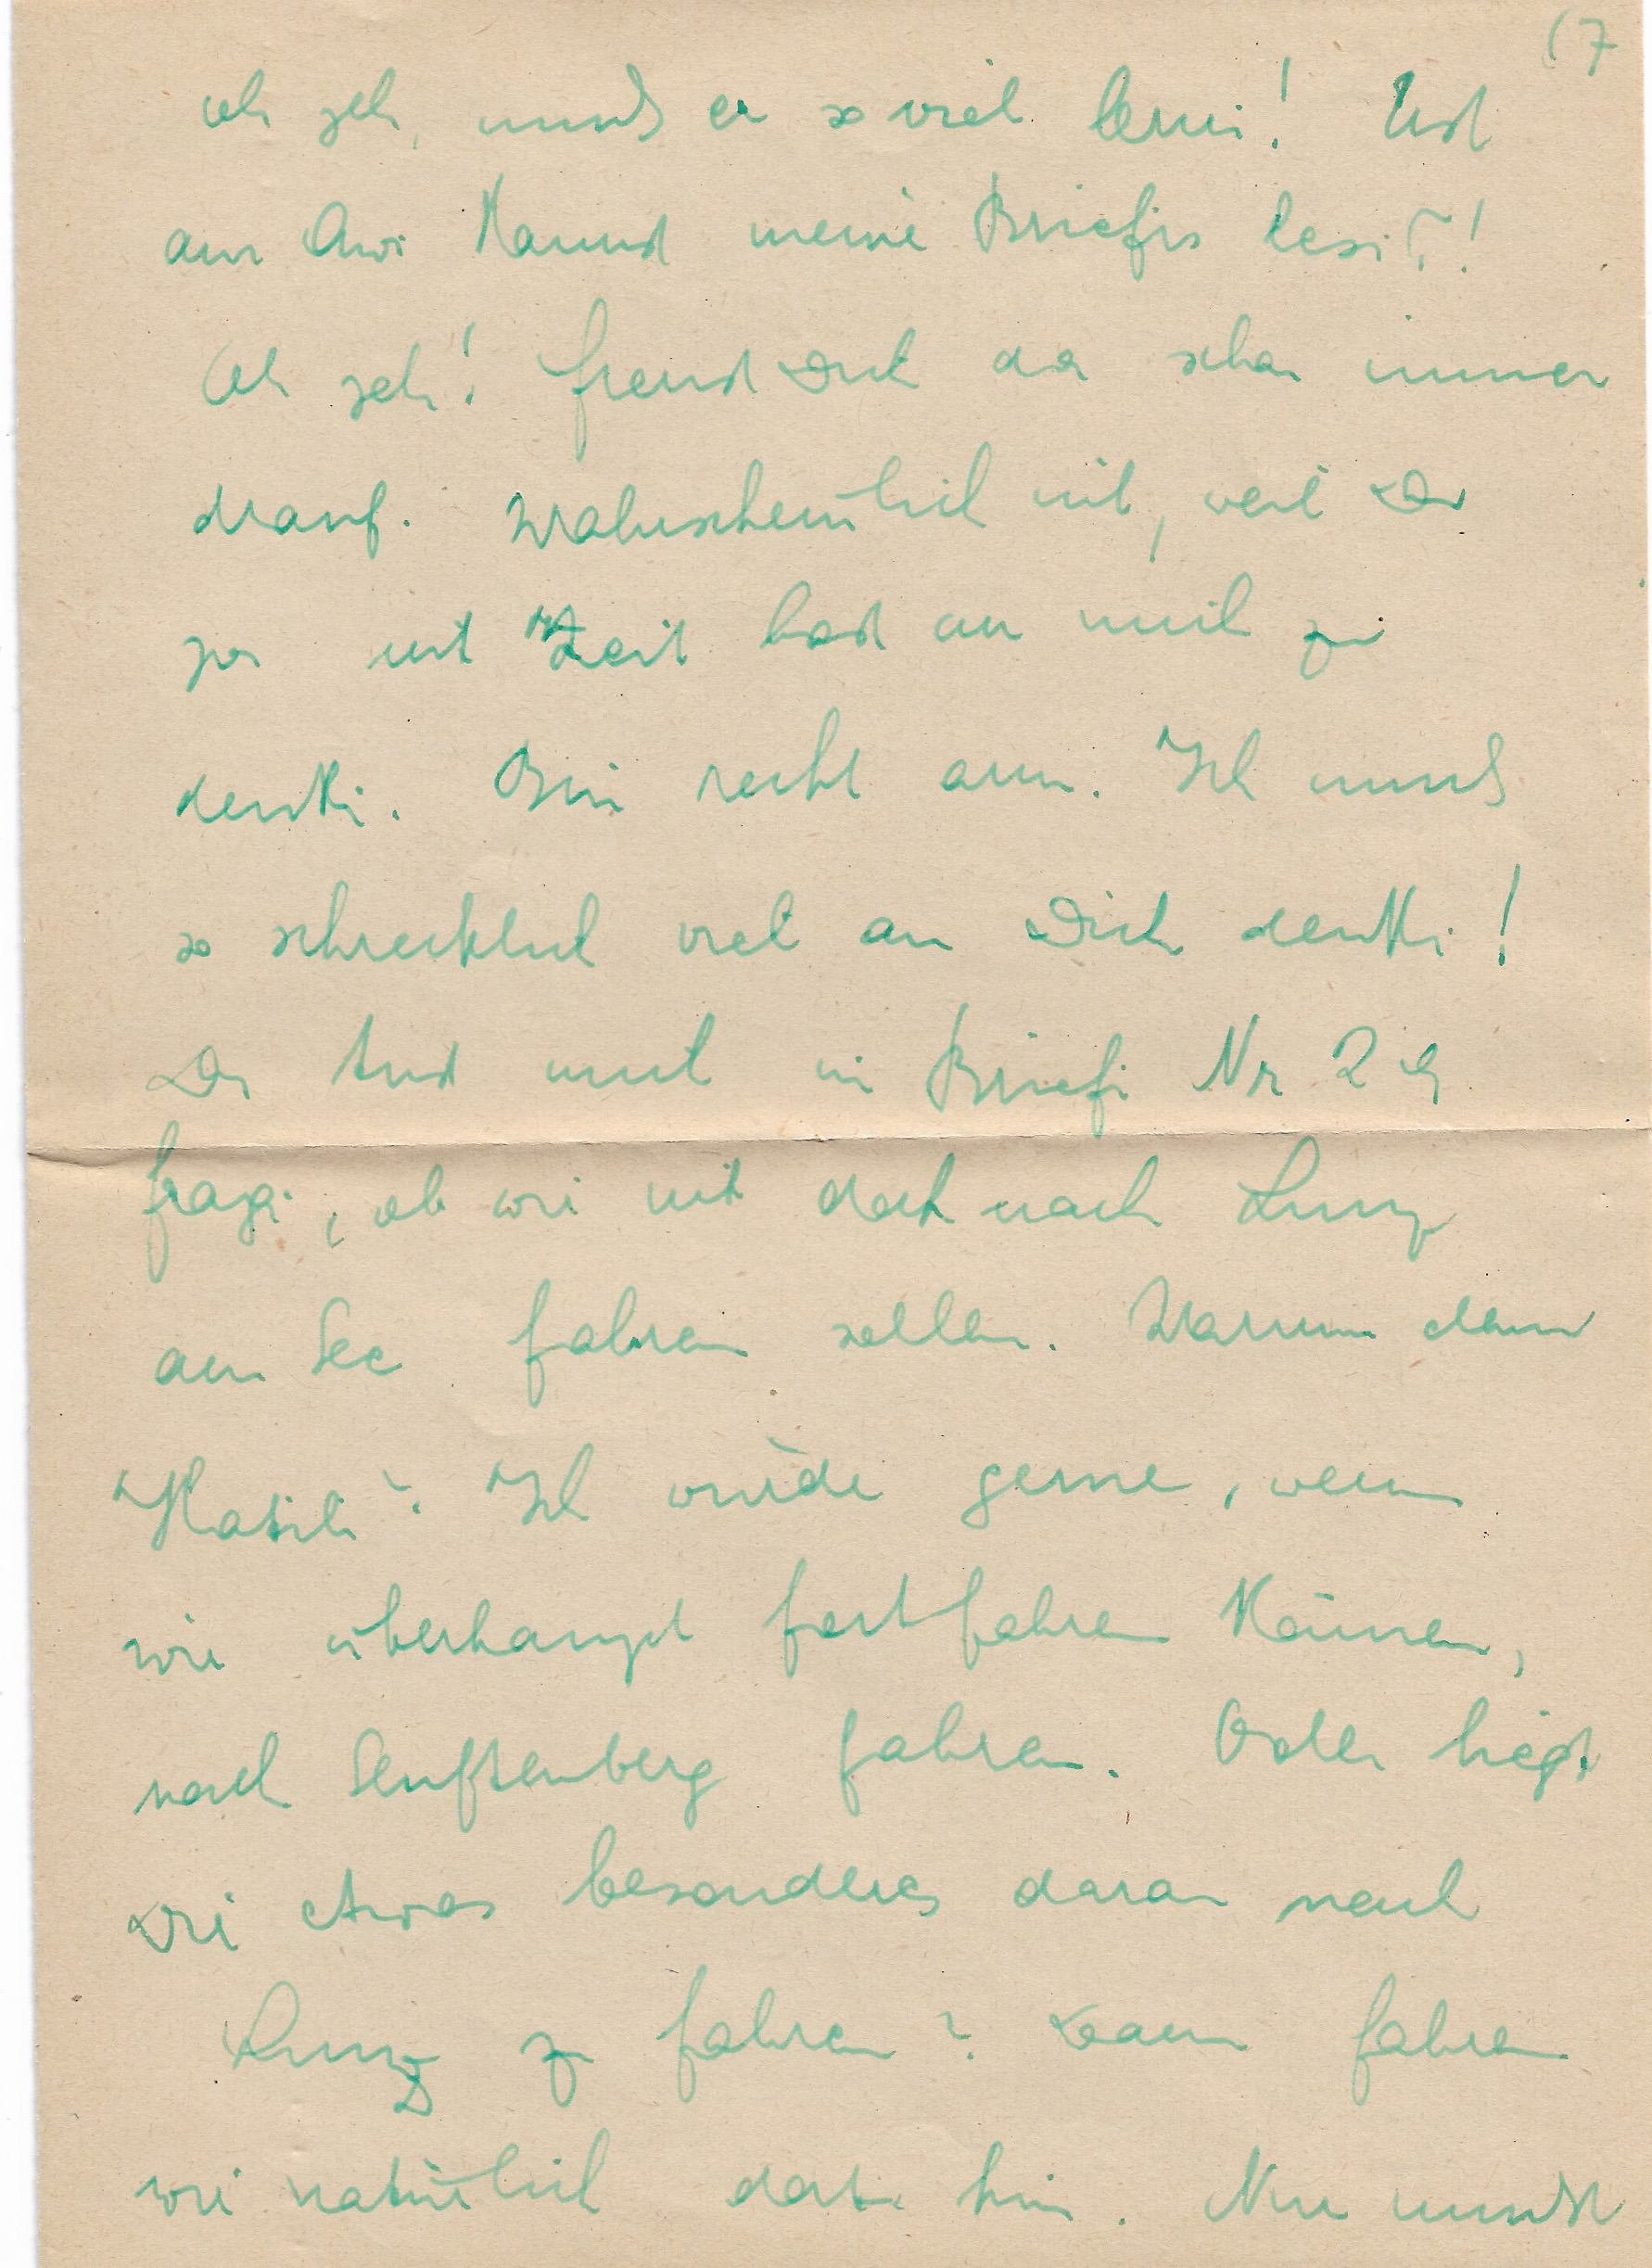 (7
oh jeh, muß er so viel lerni! Und
am Awi kannst meine Briefis lesi?!
Oh jeh! freust Dich da schon immer
drauf. Wahrscheinlich nit, weil Du
ja nit Zeit hast an mich zu
denki. Bin recht arm. Ich muß
so schrecklich viel an Dich denki!
Du tust mich in Briefi Nr 29
fragi, ob wir nit doch nach Lunz
am See fahren sollen. Warum denn
Katili? Ich würde gerne, wenn
wir überhaupt fortfahren können,
nach Senftenberg fahren. Oder liegt
Dir etwas besonderes daran nach
Lunz zu fahren? Dann fahren
wir natürlich dort hin. Nur mußt